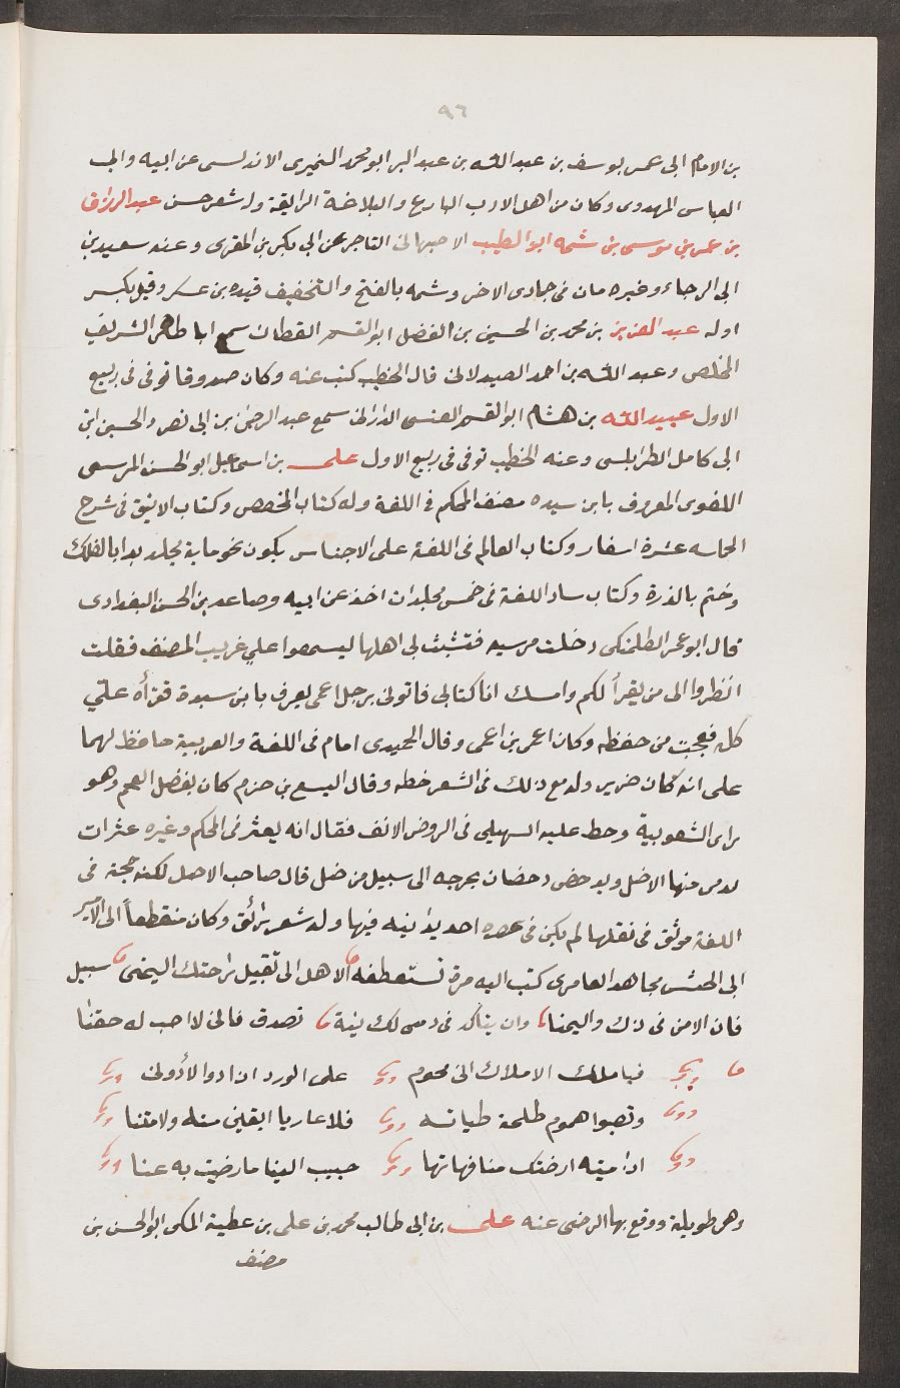 ٩٦
بن الامام ابى عمر يوسف بن عبد الله بن عبد البر ابو محمد النميرى الاندلسى عن ابيه وابى
العباس المهدوى وكان من اهل الادب البارع والبلاغة الرايقة وله شعر حسن عبد الرزاق
بن عمر بن موسى بن شمه ابو الطيب الاصبهانى التاجر عن ابى بكر بن المقرى وعنه سعيد بن
ابى الرجاء وغيره مات فى جمادى الاخر وشمه بالفتح والتخفيف قيده بن عسكر وقيل بكسر
اوله عبد العزيز بن محمد بن الحسين بن الفضل ابو القسم القطان سمع ابا طاهر الشريف
المخلص وعبد الله بن احمد الصيدلانى قال الخطيب كتب عنه وكان صدوقا توفى فى ربيع
الاول عبيد الله بن هشام ابو القسم العنسى الدارانى سمع عبد الرحمن بن ابى نصر والحسين ابن
ابى كامل الطرابلسى وعنه الخطيب توفى فى ربيع الاول على بن اسماعيل ابو الحسن المرسى
اللغوى المعروف بابن سيده مصنف المحكم فى اللغة وله كتاب المخصص وكتاب الانيق فى شرح
الحماسه عشرة اسفار وكتاب العالم فى اللغة على الاجناس يكون نحو ماية مجلد بدا بالفلك
وختم بالذرة وكتاب ساد اللغة فى خمس مجلدات اخذ عن ابيه وصاعد بن الحسن البغدادى
قال ابو عمر الطلمنكى دخلت مرسيه فتشبث بى اهلها ليسمعوا علي غريب المصنف فقلت
انظروا الى من يقرأ لكم وامسك انا كتابى فاتونى برجل اعمى يعرف بابن سيدة فقرأه علىّ
كله فعجبت من حفظه وكان اعمى بن اعمى وقال الحميدى امام فى اللغة والعربية حافظ لهما
على انه كان ضرير وله مع ذلك فى الشعر خطه وقال اليسع بن حزم كان يفضل العجم وهو
راى الشعوبية وحط عليه السهيلى فى الروض الانف فقال انه يعثر فى المحكم وغيره عثرات
يدمى منها الاظل ويدحض دحضات يخرجه الى سبيل من ضل قال صاحب الاصل لكنه حجة فى
اللغة موثق فى نقلها لم يكن فى عصره احد يدانيه فيها وله شعر رائق وكان منقطعاً الى الامير
ابى الحسن مجاهد العامرى كتب اليه مرة تستعطفه الا هل الى تقبيل راحتك اليمنى سبيل
فان الامن فى ذك واليمنا وان يتأكد فى دمى لك نية تصدق فانى لا احب له حقنا
فياملك الاملاك انى محوم على الورد
ونضوا هموم طلحته طياته فلا غاربا ابقين منه ولا متنا
اذا ميته ارضتك منا فهاتها حبيب الينا ما رضيت به عنا
وهى طويلة ووقع بها الرضى عنه على بن ابى طالب محمد بن على بن عطية المكى ابو الحسن بن
مصنف